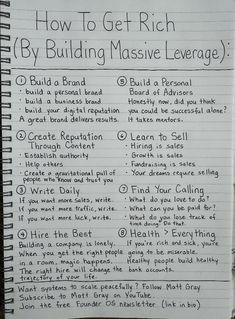 How To Get Rich
(By Building Massive Leverage):
① Build a Brand
· build a personal brand
· build a business brand
· build your digital reputation
A great brand delivers results.
② Create Reputation
Through Content
· Establish authority
· Help others
· Create a gravitational pull of
people who know and trust you
③ Write Daily
If you want more sales, write.
If you want more traffic, write.
If you want more luck, write.
④ Hire the Best
Building a company is lonely.
When you get the right people
in a room, magic happens.
The right hire will change the
trajectory of your life.
⑤ Build a Personal
Board of Advisors
Honestly now, did you think
you could be successful alone?
It takes mentors.
⑥ Learn to Sell
· Hiring is sales
· Growth is sales
· Fundraising is sales
· Your dreams require selling
⑦ Find Your Calling
· What do you love to do?
· What can you be paid for?
· What do you lose track of
time doing? Do that.
⑧ Health > Everything
If you're rich and sick, you're
going to be miserable.
Healthy people build healthy
bank accounts.
Want systems to scale peacefully? Follow Matt Gray
Subscribe to Matt Gray on YouTube
Join the free Founder OS newsletter (link in bio)